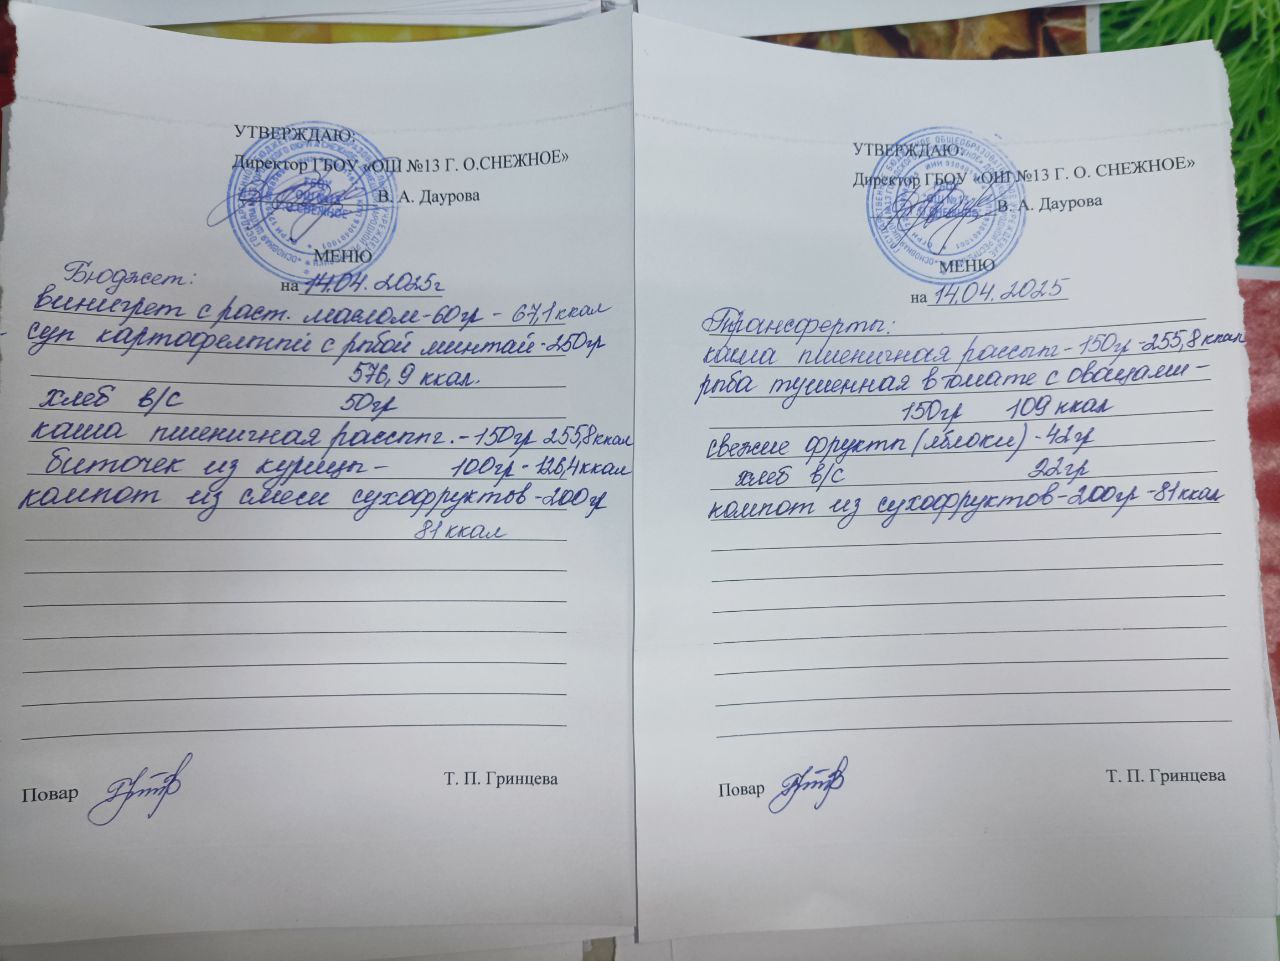 УТВЕРЖДАЮ:
Директор ГБОУ «ОШ №13 Г. О.СНЕЖНОЕ»
В. А. Даурова
МЕНЮ
на 14.04. 2025г
Бюджет:
винигрет с раст. маслом-60гр - 67,1 ккал
суп картофельный с рыбой минтай-250гр
576,9 ккал.
хлеб в/с 50гр
каша пшеничная рассыпч.-150гр 255,8ккал
биточек из курицы - 100гр-126,4ккал
компот из смеси сухофруктов-200гр
81 ккал
Повар
Т. П. Гринцева
УТВЕРЖДАЮ:
Директор ГБОУ «ОШ №13 Г. О. СНЕЖНОЕ»
В. А. Даурова
МЕНЮ
на 14.04. 2025
Трансферты:
каша пшеничная рассыпч-150гр-255,8ккал
рыба тушенная в томате с оващами-
150гр 109 ккал
свежие фрукты (яблоки)-42гр
хлеб в/с 22гр
компот из сухофруктов-200гр-81ккал
Повар
Т. П. Гринцева